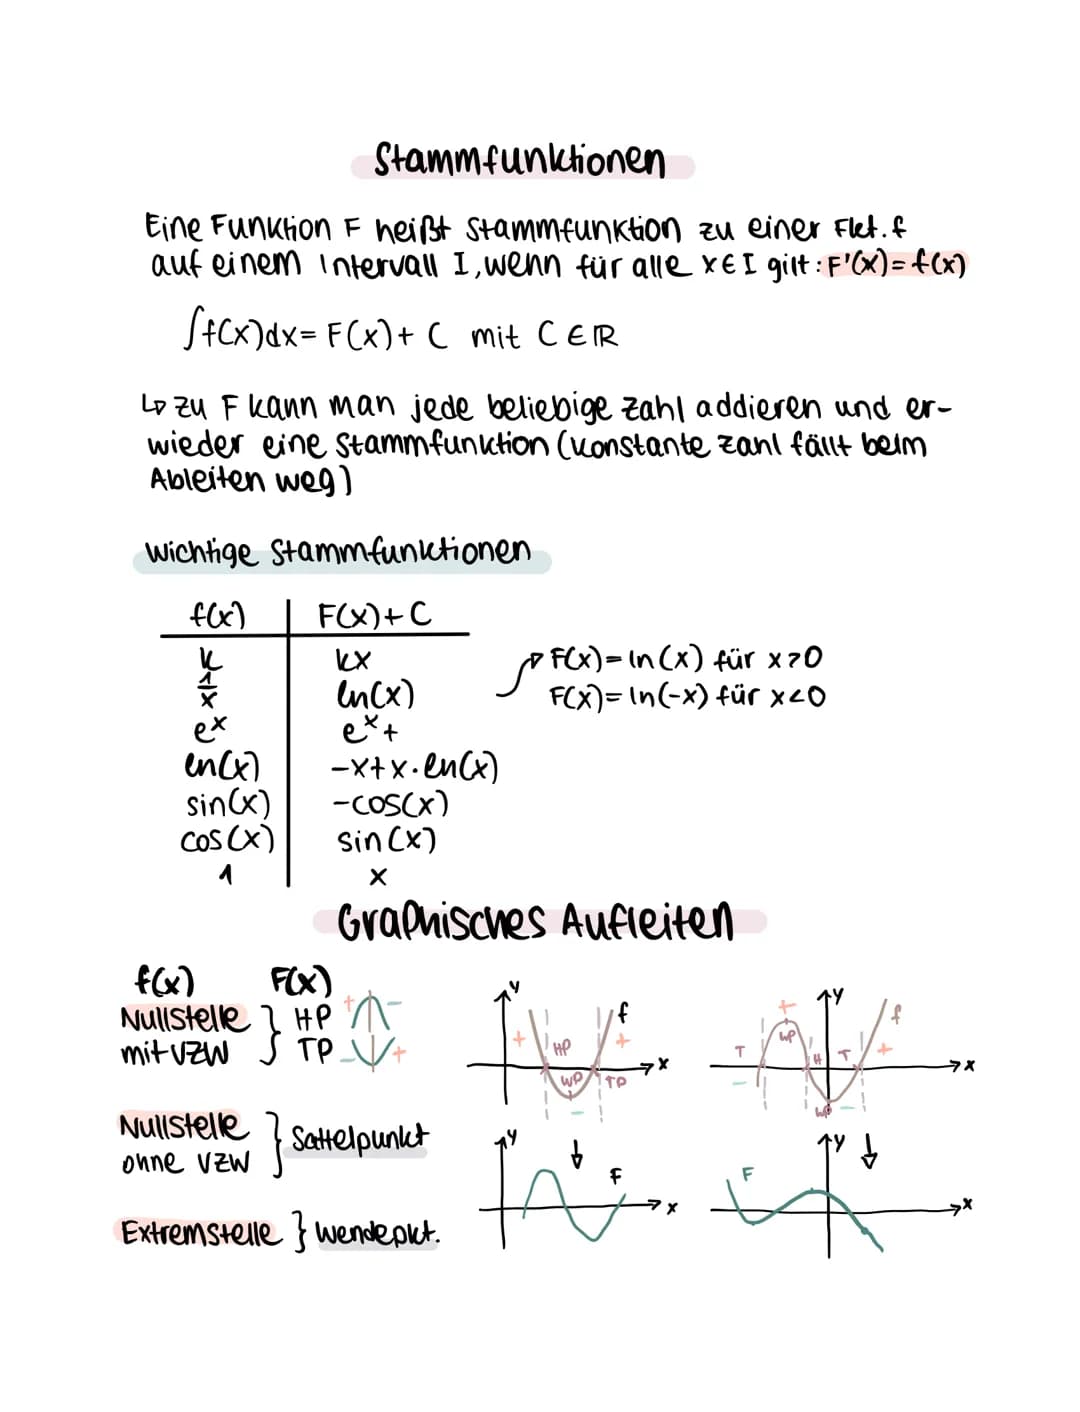 Stammfunktionen
Eine Funktion F heißt Stammfunktion zu einer Fkt. f
auf einem Intervall I, wenn für alle x∈I gilt: F'(x)=f(x)
∫f(x)dx= F(x)+ C mit C∈ℝ
↳ zu F kann man jede beliebige Zahl addieren und er-
wieder eine Stammfunktion (konstante Zahl fällt beim
Ableiten weg)
wichtige Stammfunktionen
f(x) F(x)+C
k kx
1/x ln(x)
F(x)=ln(x) für x>0
F(x)=ln(-x) für x<0
eˣ eˣ+
ln(x) -x+x·ln(x)
sin(x) -cos(x)
cos(x) sin(x)
1 x
Graphisches Aufleiten
f(x) F(x)
Nullstelle } HP + -
mit VZW TP - +
Nullstelle } Sattelpunkt
ohne VZW
Extremstelle } Wendepkt.
y f x
+ HP +
WP TP
-
y F x
y f x
+ WP
T H T +
- WP -
y F x